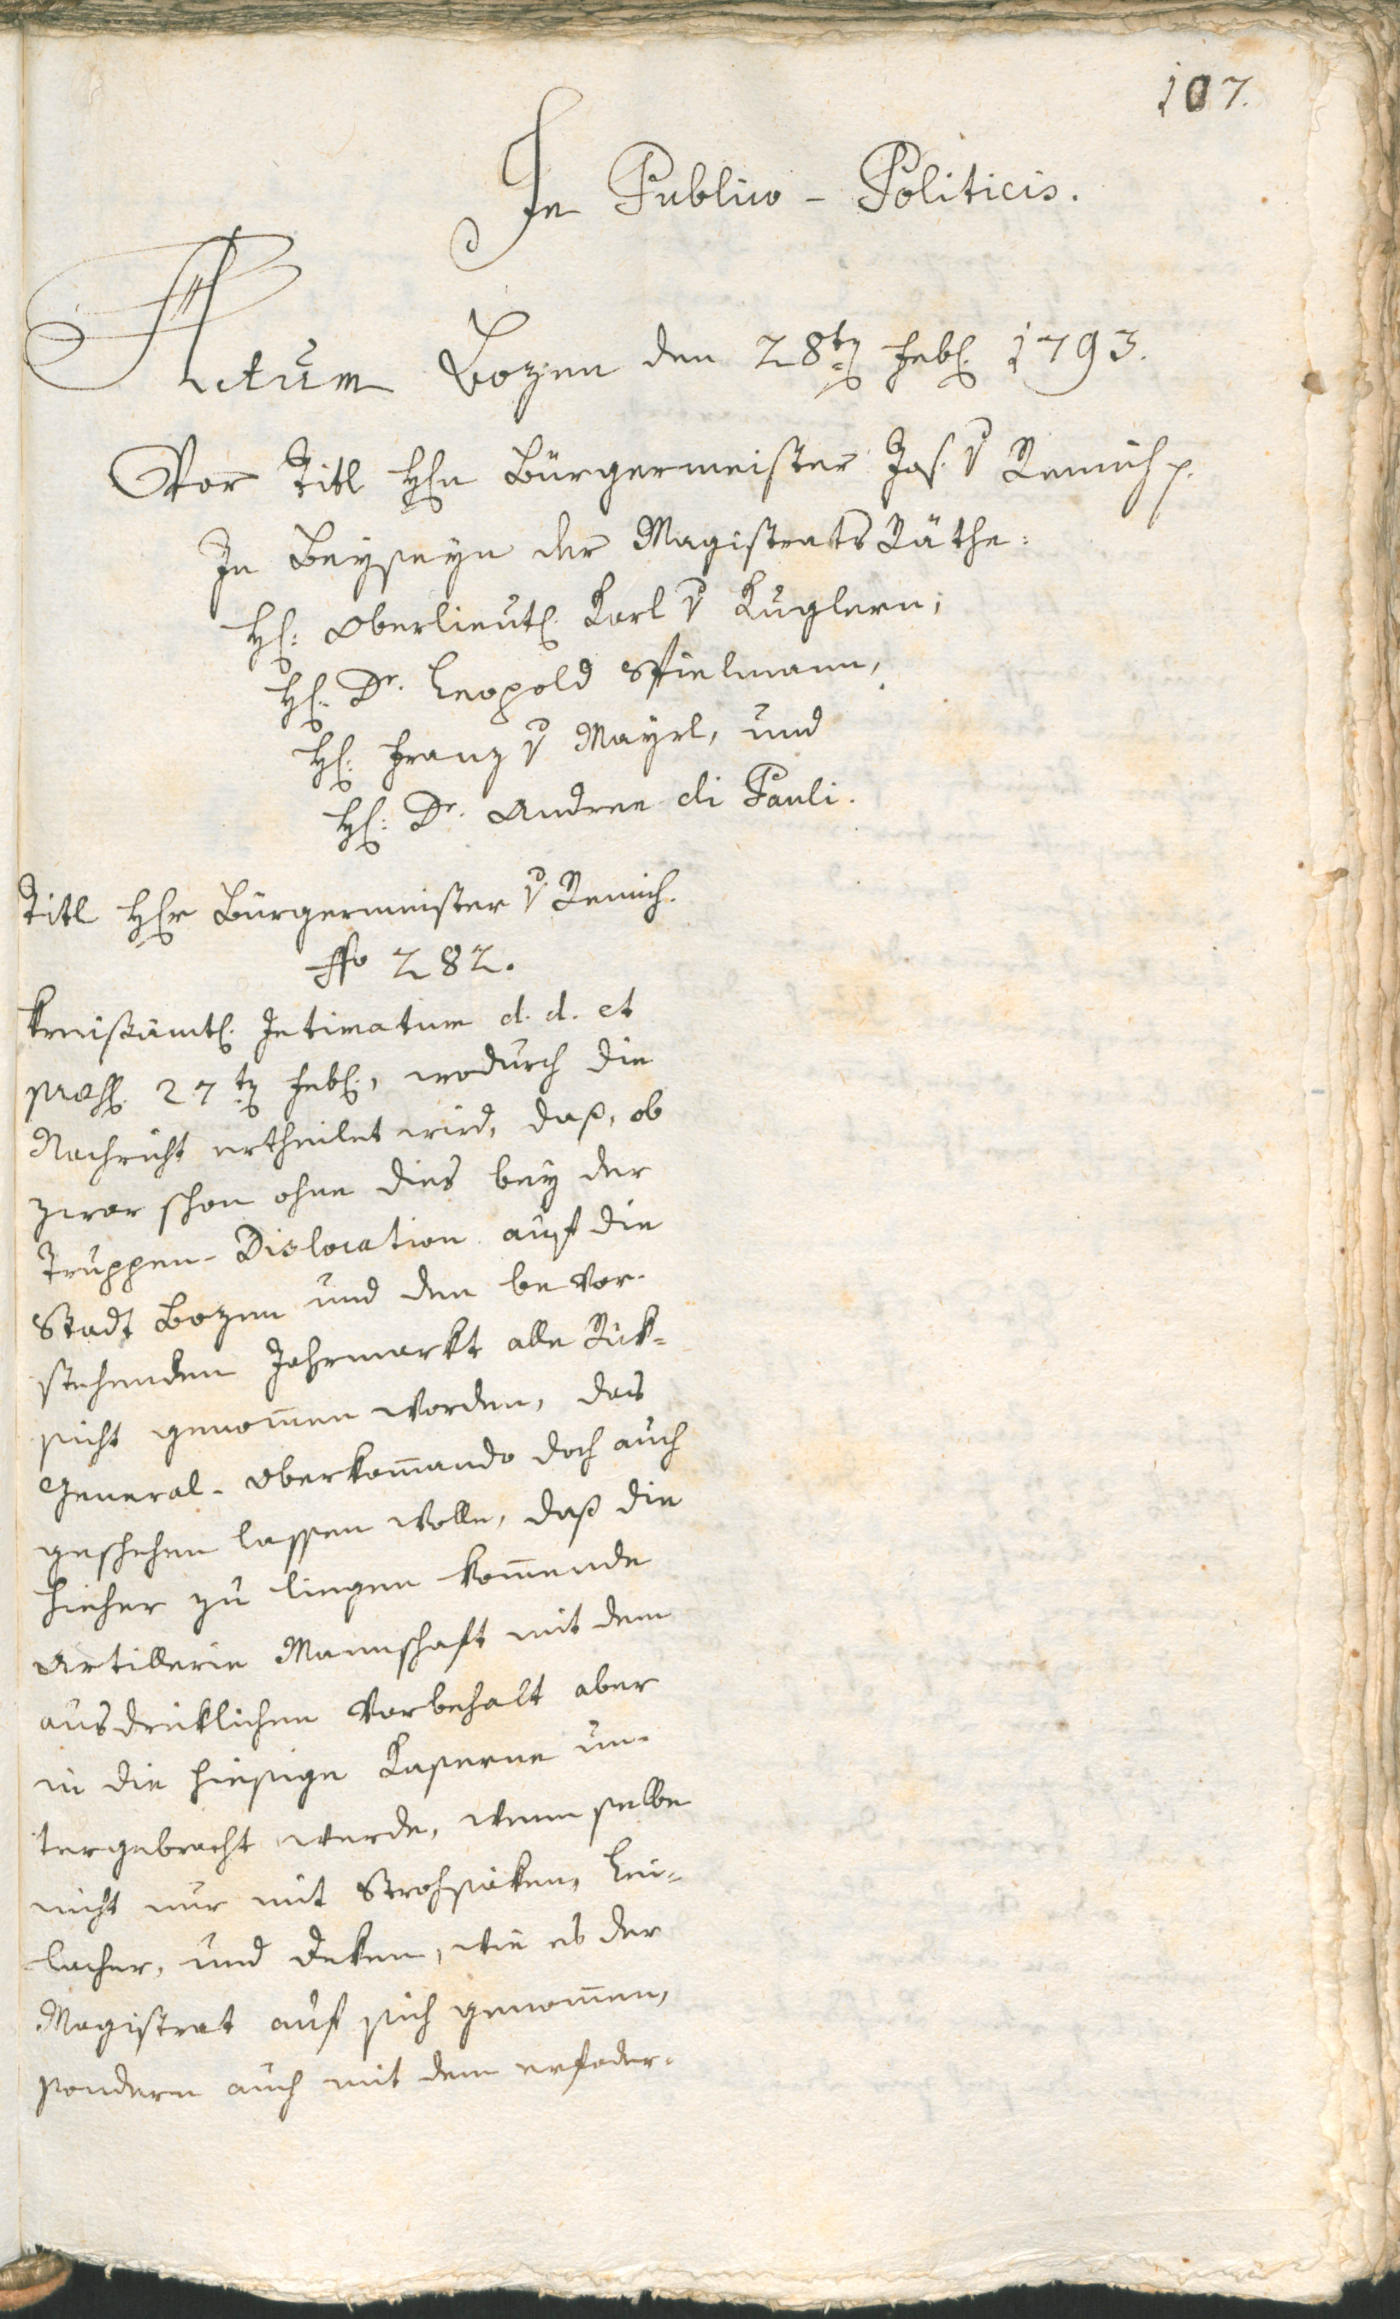 107.
In Publico-Politicis.
Actum Bozen den 28ten Feb. 1793.
Vor Titl Hhn Bürgermeister Jos. v Remich p.
In Beyseyn der Magistrats Räthe:
H: Oberlieut. Karl v Kuglern;
H: Dr. Leopold Spielmann,
H: Franz v Mayrl, und
H: Dr. Andree di Pauli.
Titl Herr Bürgermeister v Remich.
No 282.
Kreisämtl. Intimatum d. d. et
27ten Feb., wodurch die
Nachricht ertheilet wird, daß, ob
zwar schon ohne dies bey der
Truppen-Dislocation auf die
Stadt Bozen und den bevor-
stehenden Jahrmarkt alle Rük-
sicht genom̄en worden, das
General-Oberkom̄ando doch auch
geschehen lassen wolle, daß die
hieher zu liegen kom̄ende
Artillerie Mannschaft mit dem
ausdrüklichen Vorbehalt aber
in die hiesige Kaserne un-
tergebracht werde, wenn selbe
nicht nur mit Strohsäken, Lei-
lacher, und Deken, wie es der
Magistrat auf sich genom̄en,
sondern auch mit dem erfoder-